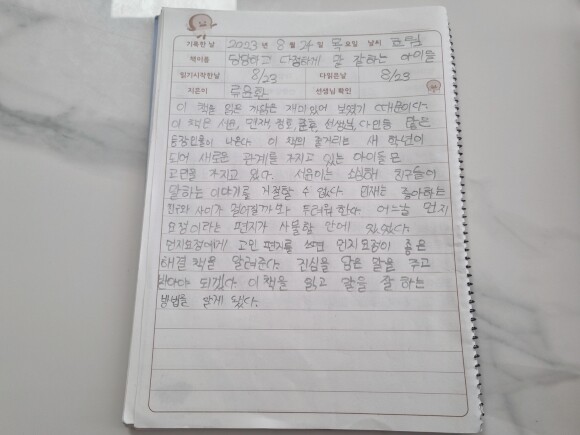 기록한 날 2023년 8월 24일 목요일 날씨 흐림
책이름 당당하고 다정하게 말 잘하는 아이들
읽기시작한날 8/23 다읽은날 8/23
지은이 류윤환 선생님 확인
이 책을 읽은 까닭은 재미있어 보였기 때문이다.
이 책은 서윤, 민재, 정호, 선생님, 다인등 많은
등장인물이 나온다. 이 책의 줄거리는 새 학년이
되어 새로운 관계를 가지고 있는 아이들은
고민을 가지고 있다. 서윤이는 소심해서 친구들이
말하는 이야기를 거절할 수 없다. 민재는 좋아하는
친구와 사이가 멀어질까 봐 두려워 한다. 어느날 먼지
요정이라는 편지가 사물함 안에 있었다.
먼지요정에게 고민 편지를 쓰면 먼지 요정이 좋은
해결책을 알려준다. 진심을 담은 말을 주고
받아야 되겠다. 이 책을 읽고 말을 잘 하는
방법을 알게 됐다.